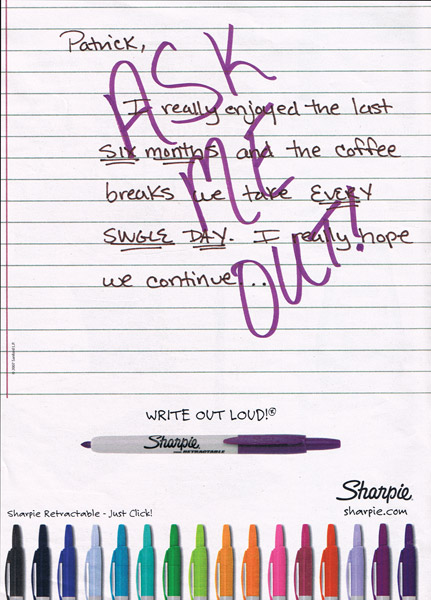 Patrick,
ASK
I really enjoyed the last
SIX months and the coffee
ME
breaks we take EVERY
SINGLE DAY. I really hope
we continue...
OUT!
WRITE OUT LOUD!®
Sharpie.
RETRACTABLE
Sharpie.
Sharpie Retractable - Just Click!
sharpie.com